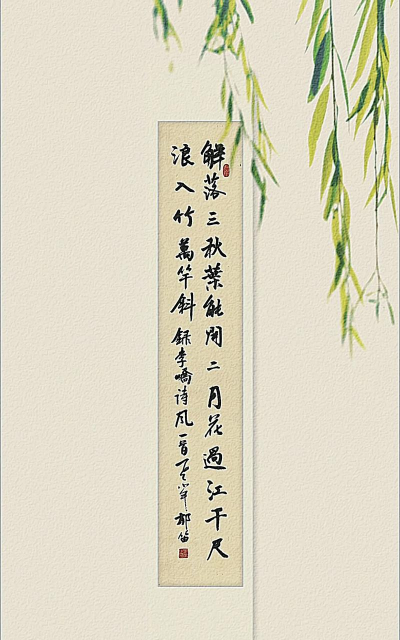 解落三秋葉能開二月花過江千尺
浪入竹萬竿斜 録李嶠诗风一首 年 郁笛